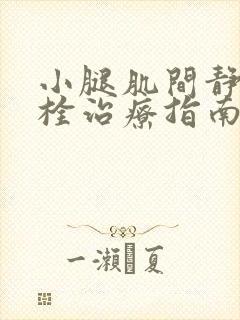 小腿肌間靜
栓治療指南
一瀨夏